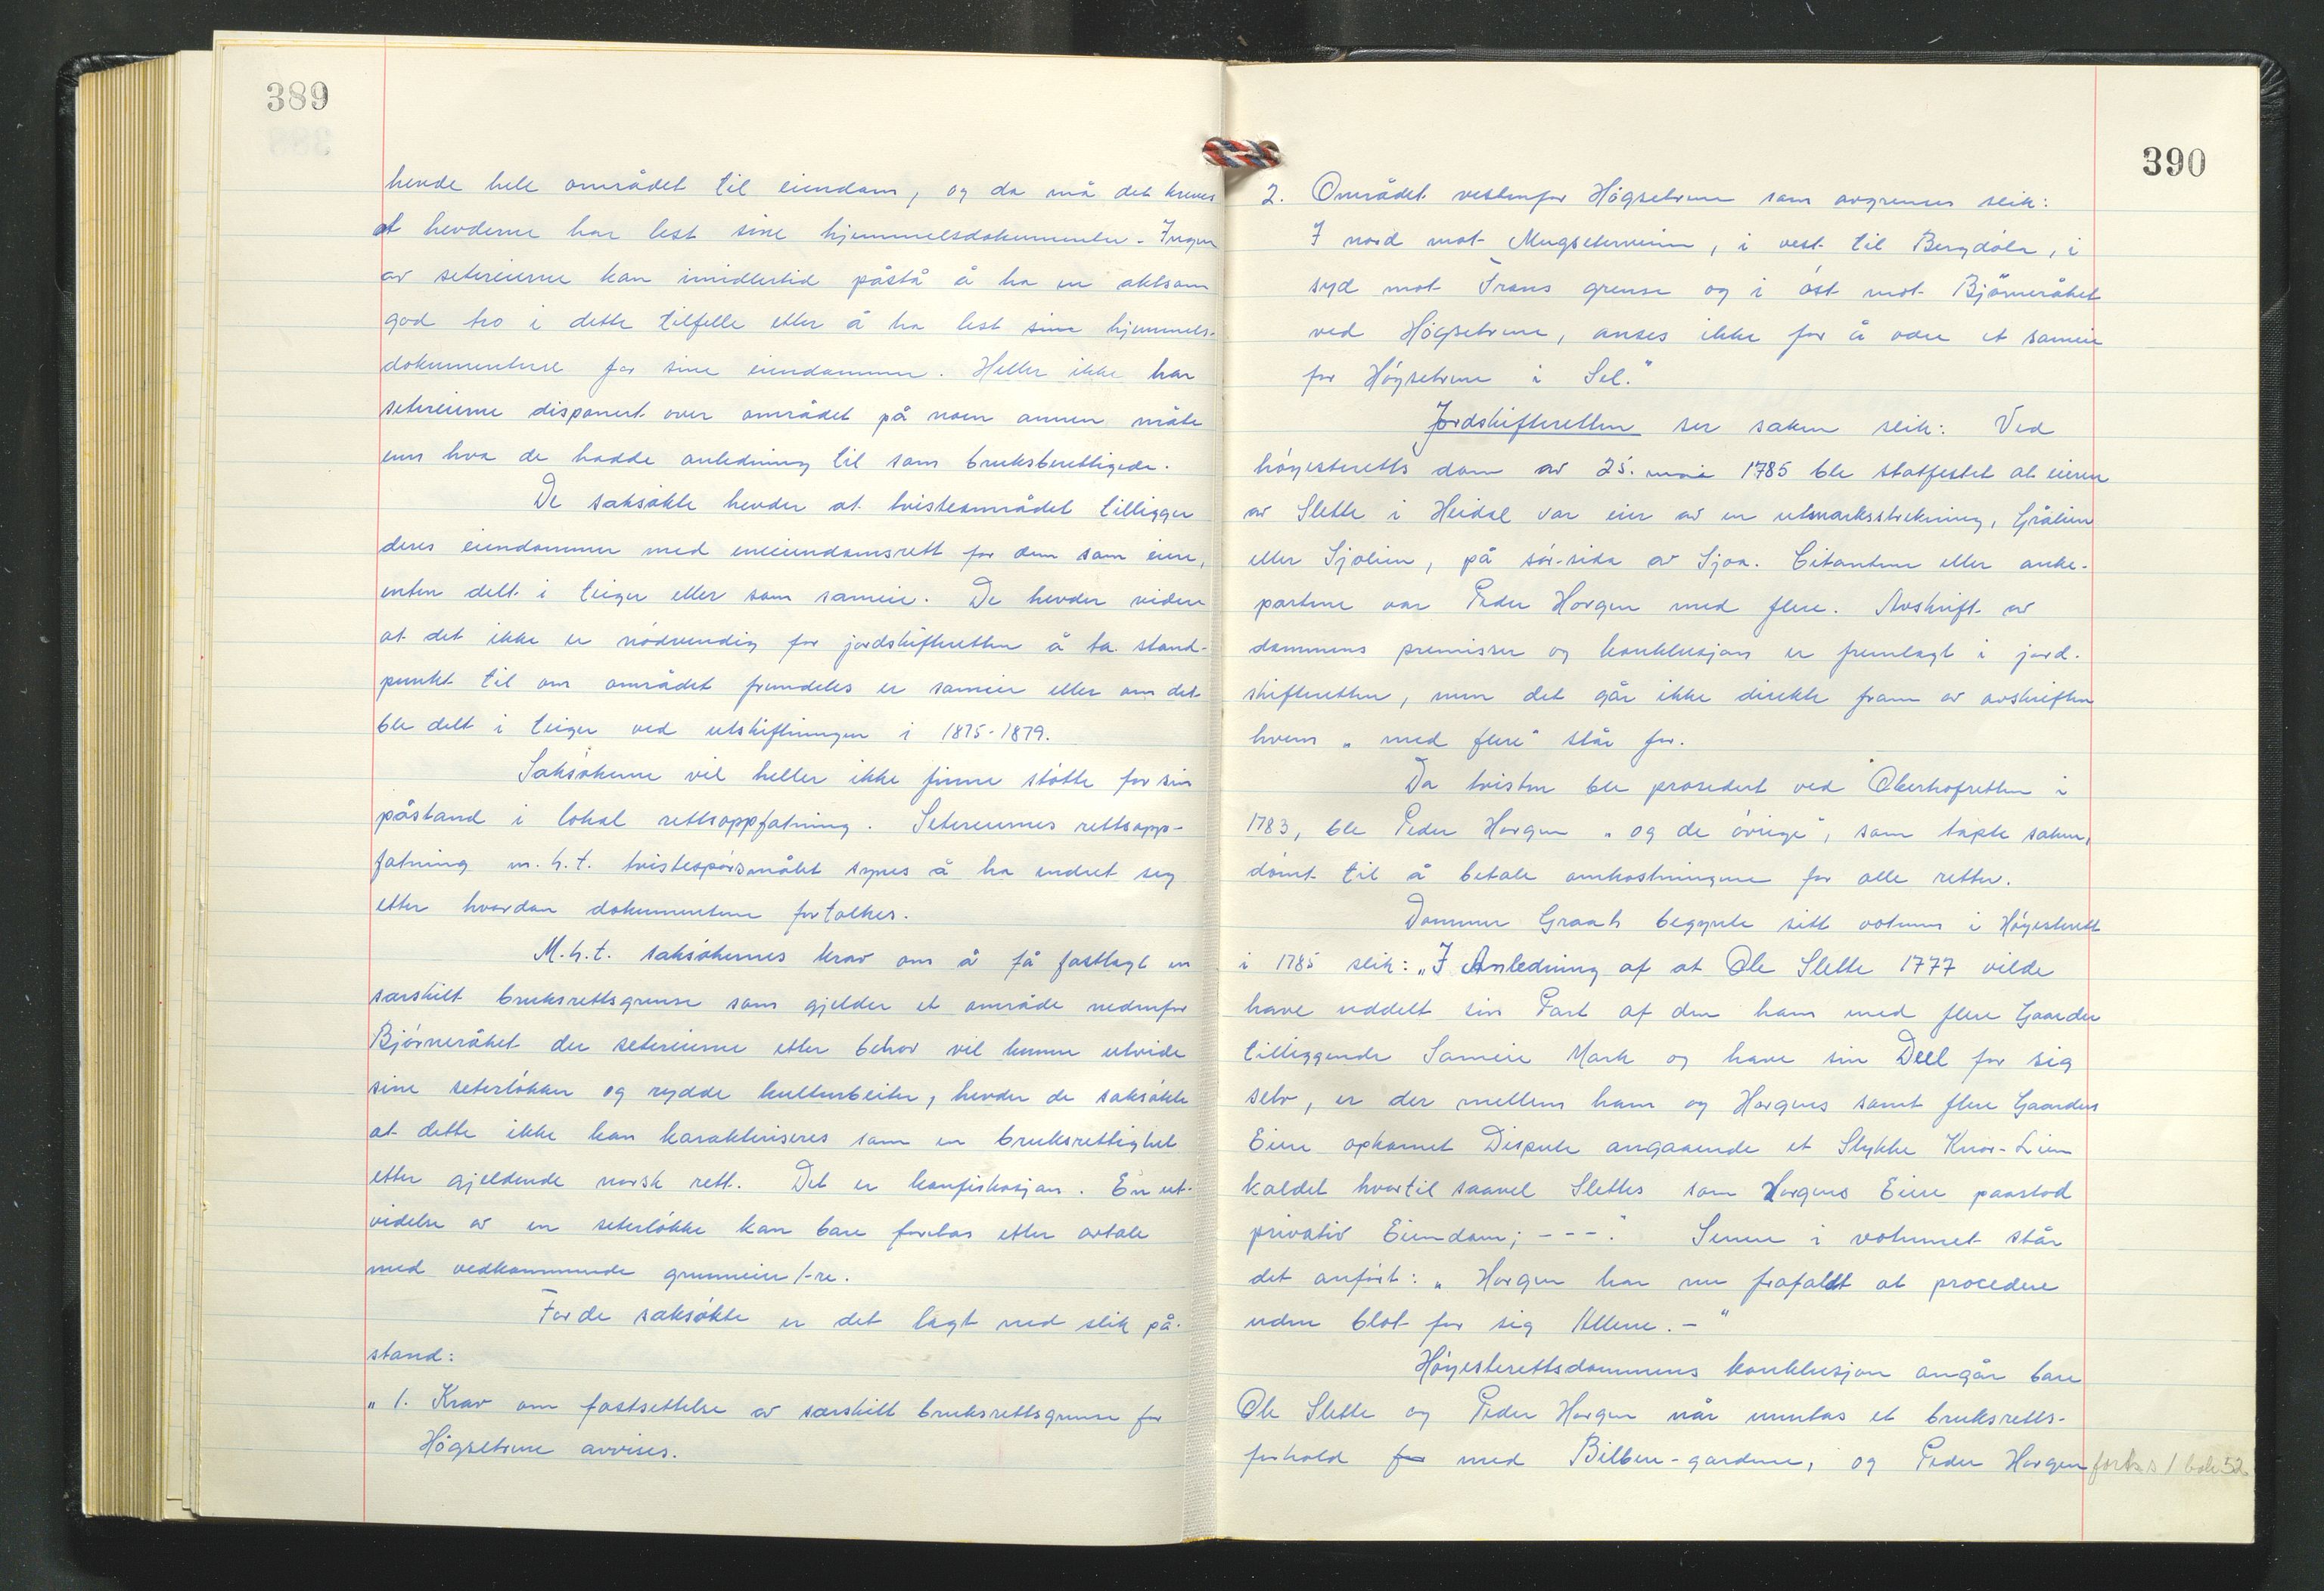 389
hevde hele området til eiendom, og da må det kreves
at hevderne har lest sine hjemmelsdokumenter. Ingen
av setereierne kan imidlertid påstå å ha en aktsom
god tro i dette tilfelle etter å ha lest sine hjemmels-
dokumentene for sine eiendommer. Heller ikke har
setereierne disponert over området på noen annen måte
enn hva de hadde anledning til som bruksberettigede.
De saksøkte hevder at tvisteområdet tilligger
deres eiendommer med eneeiendomsrett for dem som eiere,
enten delt i teiger eller som sameie. De hevder videre
at det ikke er nødvendig for jordskifteretten å ta stand-
punkt til om området fremdeles er sameie eller om det
ble delt i teiger ved utskiftningen i 1875-1879.
Saksøkerne vil heller ikke finne støtte for sin
påstand i lokal rettsoppfatning. Setereiernes rettsopp-
fatning m.h.t. tvistespørsmålet synes å ha endret seg
etter hvordan dokumentene fortolkes.
M.h.t. saksøkernes krav om å få fastlagt en
særskilt bruksrettsgrense som gjelder et område nedenfor
Bjørneråket der setereierne etter behov vil kunne utvide
sine seterløkker og rydde kulturbeiter, hevder de saksøkte
at dette ikke kan karakteriseres som en bruksrettighet
etter gjeldende norsk rett. Det er konfiskasjon. En ut-
videlse av en seterløkke kan bare foretas etter avtale
med vedkommende grunneier/-re.
For de saksøkte er det lagt ned slik på-
stand:
" 1. Krav om fastsettelse av særskilt bruksrettsgrense for
Høgsetrene avvises.
390
2. Området vestenfor Høgsetrene som avgrenses slik:
I nord mot Mugseterveien, i vest til Bergdøla, i
syd mot Frons grense og i øst mot Bjørneråket
ved Høgsetrene, anses ikke for å være et sameie
for Høgsetrene i Sel."
Jordskifteretten ser saken slik: Ved
høyesteretts dom av 25. mai 1785 ble stadfestet at eieren
av Slette i Heidal var eier av en utmarksstrekning, Gråliene
eller Sjoliene, på sør-sida av Sjoa. Citantene eller anke-
partene var Peder Horgen med flere. Avskrift av
dommens premisser og konklusjon er fremlagt i jord-
skifteretten, men det går ikke direkte fram av avskriften
hvem "med flere" står for.
Da tvisten ble prosedert ved Oberhofretten i
1783, ble Peder Horgen "og de øvrige", som tapte saken,
dømt til å betale omkostningene for alle retter.
Dommer Graah begynte sitt votum i Høyesterett
i 1785 slik: "I Anledning af at Ole Slette 1777 vilde
have uddelt sin Part af den ham med flere Gaarder
tilliggende Sameie Mark og have sin Deel for sig
selv, er der mellem ham og Horgens samt flere Gaarders
Eiere opkomet Dispute angaaende et Stykke Knor-Lien
kaldet hvortil saavel Slettes som Horgens Eiere paastod
privativ Eiendom; - - -." Senere i votumet står
det anført: "Horgen har nu frafaldt at procedere
uden blot for sig Allene. -"
Høyesterettsdommens konklusjon angår bare
Ole Slette og Peder Horgen når unntas et bruksretts-
forhold for med Bilben-gardene, og Peder Horgen
forts s 1 bok 52